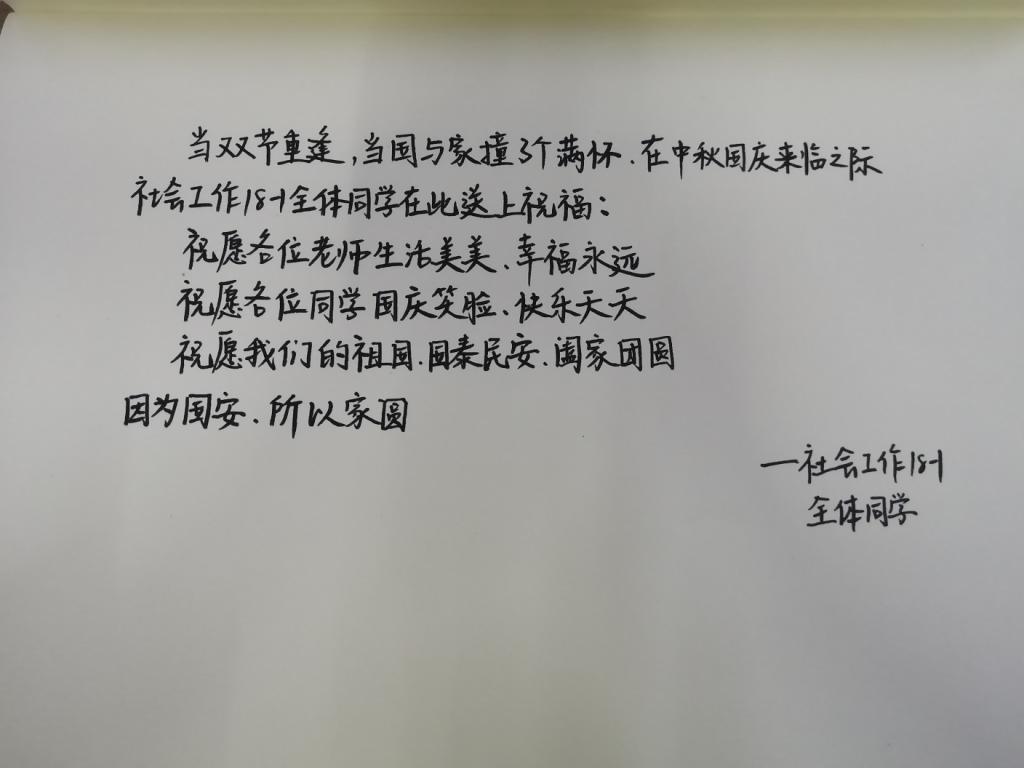 当双节重逢,当国与家撞了个满怀、在中秋国庆来临之际
社会工作18-1全体同学在此送上祝福:
祝愿各位老师生活美美、幸福永远
祝愿各位同学国庆笑脸、快乐天天
祝愿我们的祖国、国泰民安、阖家团圆
因为国安、所以家圆
—社会工作18-1
全体同学